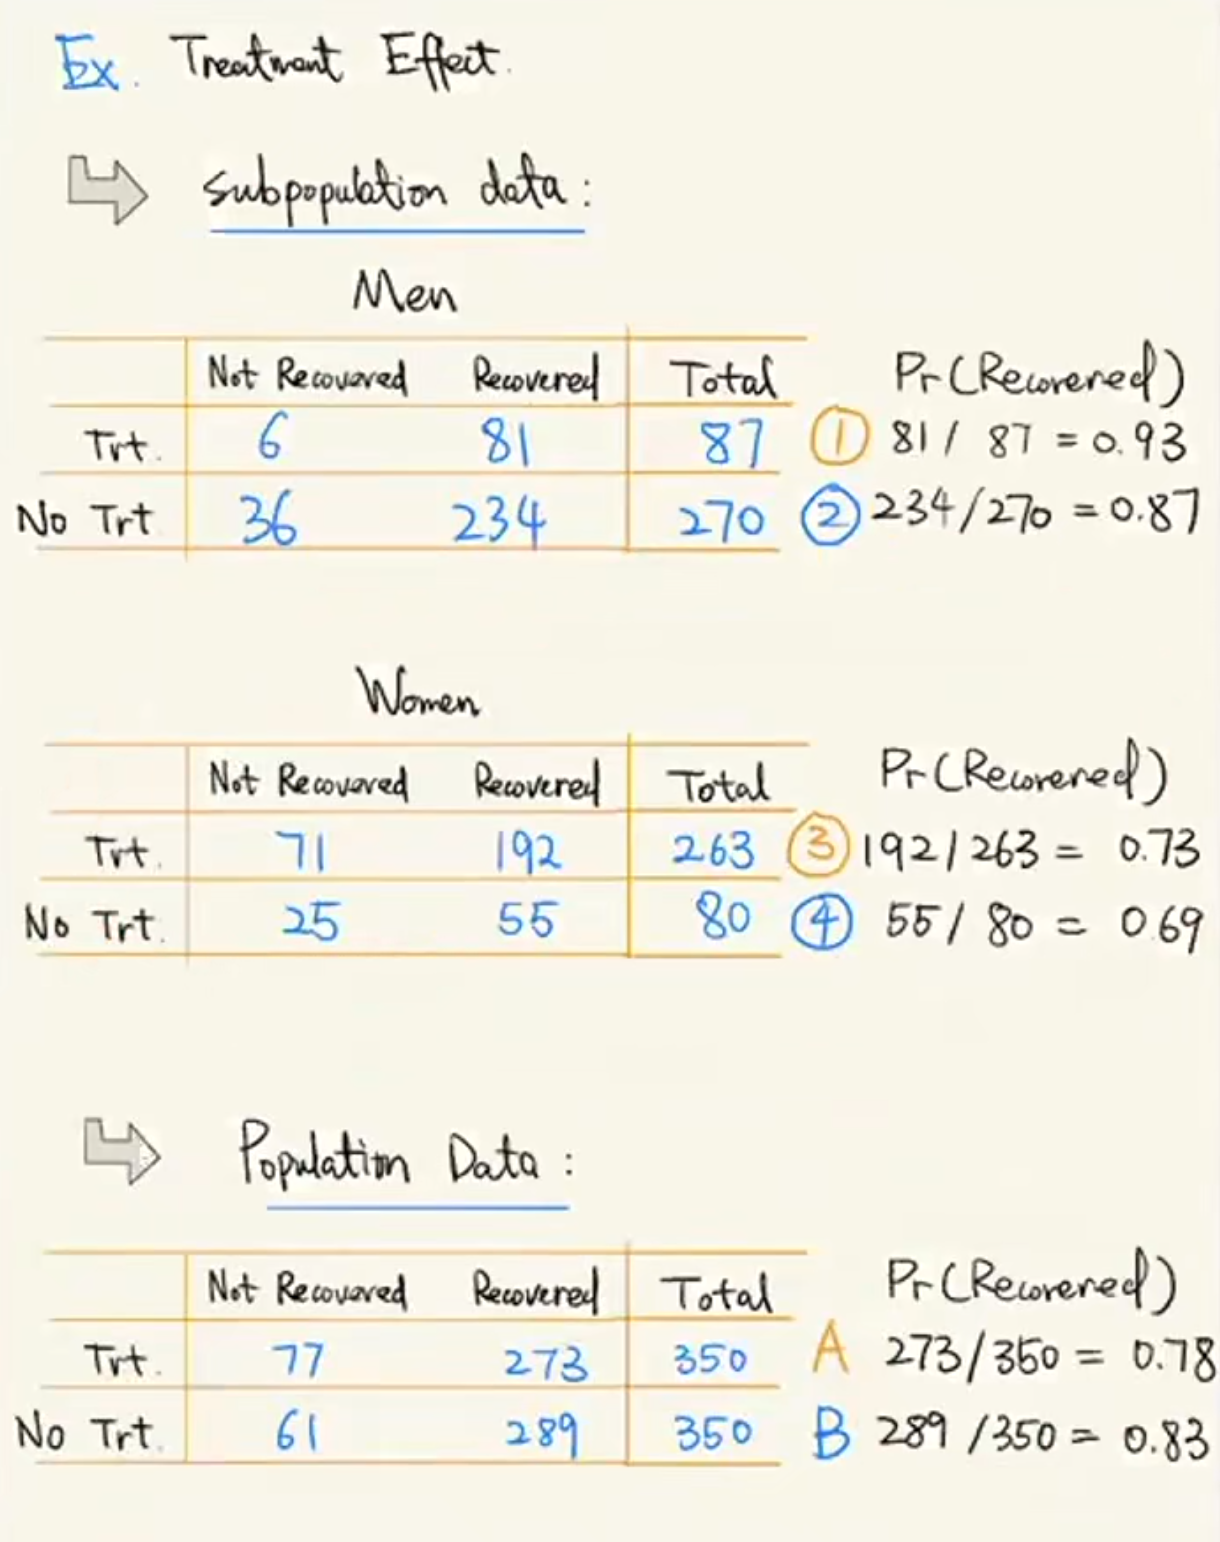 Ex. Treatment Effect.
subpopulation data:
Men
Not Recovered Recovered Total Pr(Recovered)
Trt. 6 81 87 ① 81/87 = 0.93
No Trt 36 234 270 ② 234/270 = 0.87
Women
Not Recovered Recovered Total Pr(Recovered)
Trt. 71 192 263 ③ 192/263 = 0.73
No Trt. 25 55 80 ④ 55/80 = 0.69
Population Data:
Not Recovered Recovered Total Pr(Recovered)
Trt. 77 273 350 A 273/350 = 0.78
No Trt. 61 289 350 B 289/350 = 0.83